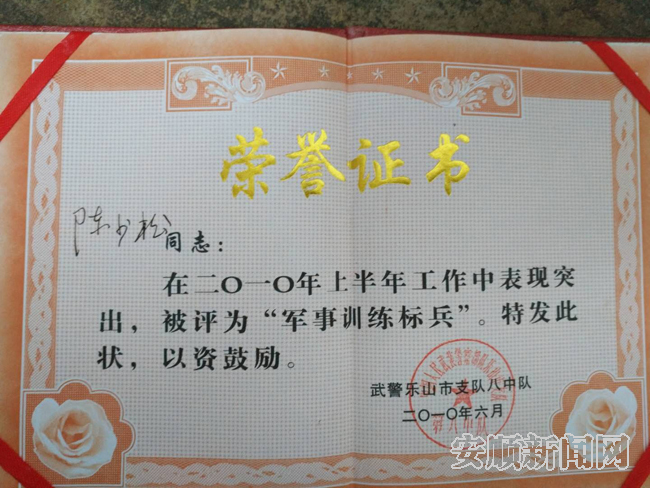 荣誉证书
陈少松同志：
在二〇一〇年上半年工作中表现突
出，被评为“军事训练标兵”。特发此
状，以资鼓励。
武警乐山市支队八中队
二〇一〇年六月
第八中队
安顺新闻网